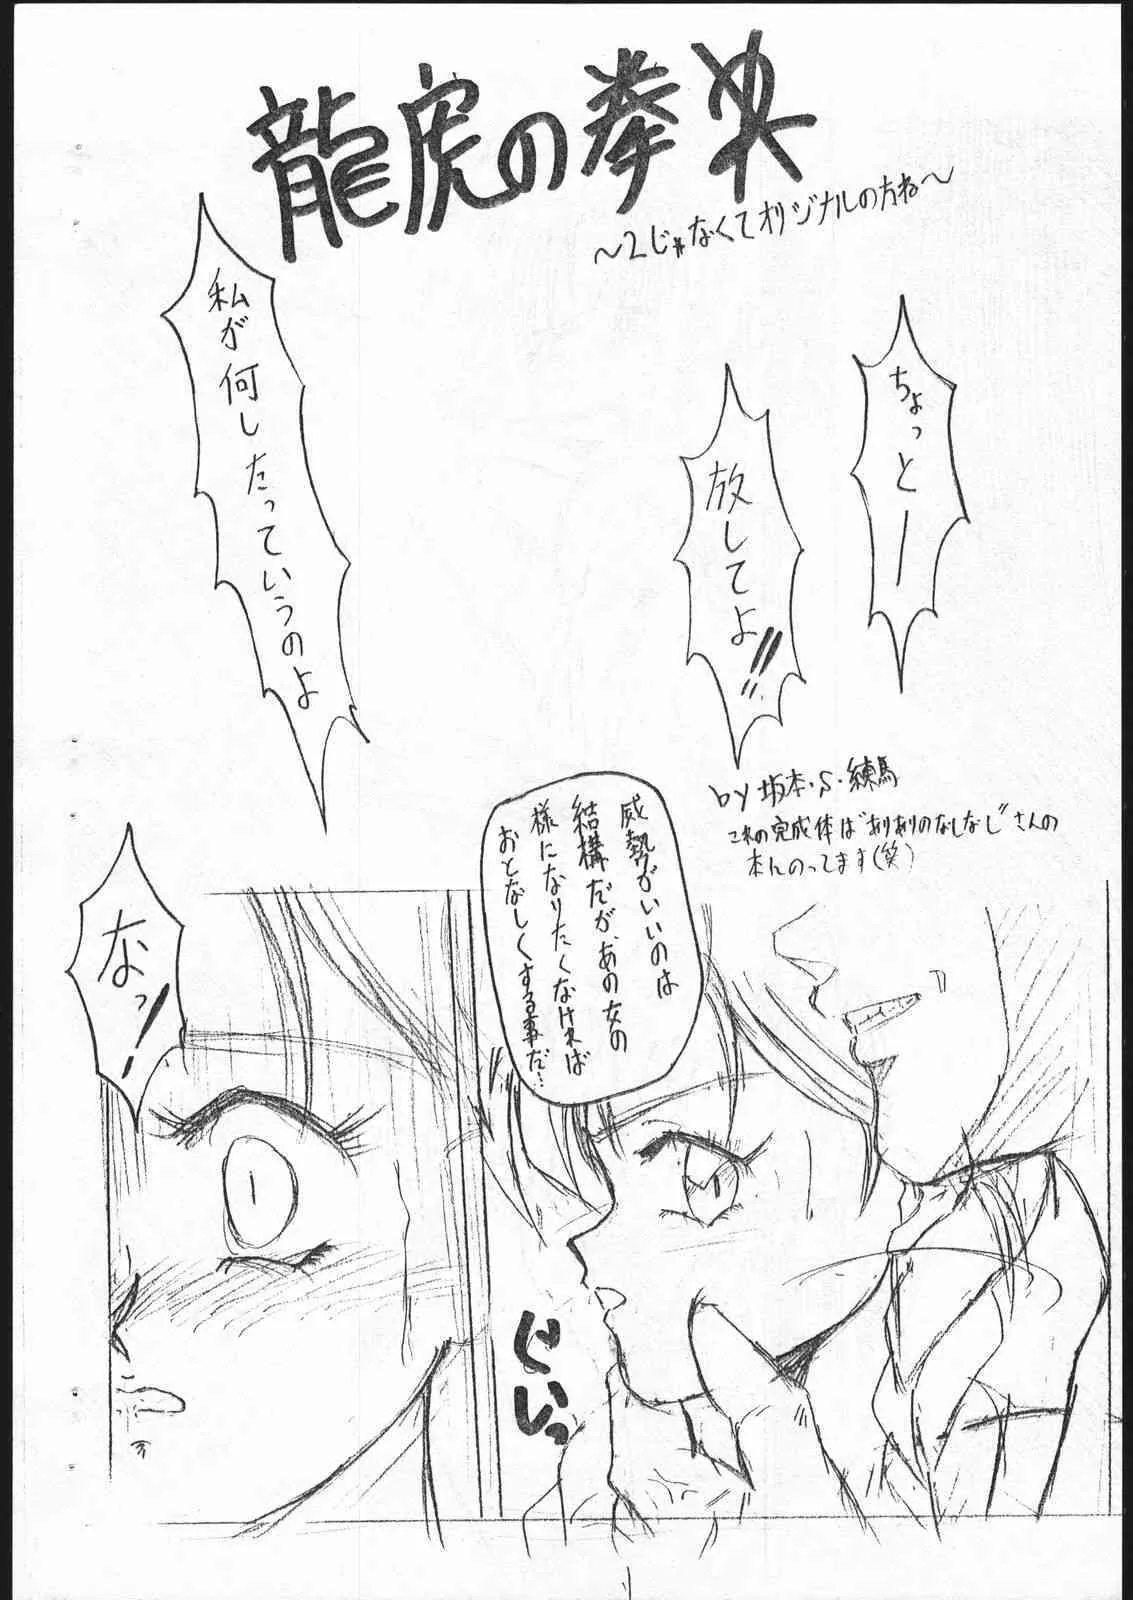 龍虎の拳
～2じゃなくてオリジナルの方ね～
ちょっとー
放してよ!!
私が何したっていうのよ
by 坂本・S・練馬
これの完成体は"ありありのなしなし"さんの
本んのってます(笑)
威勢がいいのは
結構だが、あの女の
様になりたくなければ
おとなしくする事だ…
ぐいっ
なっ!